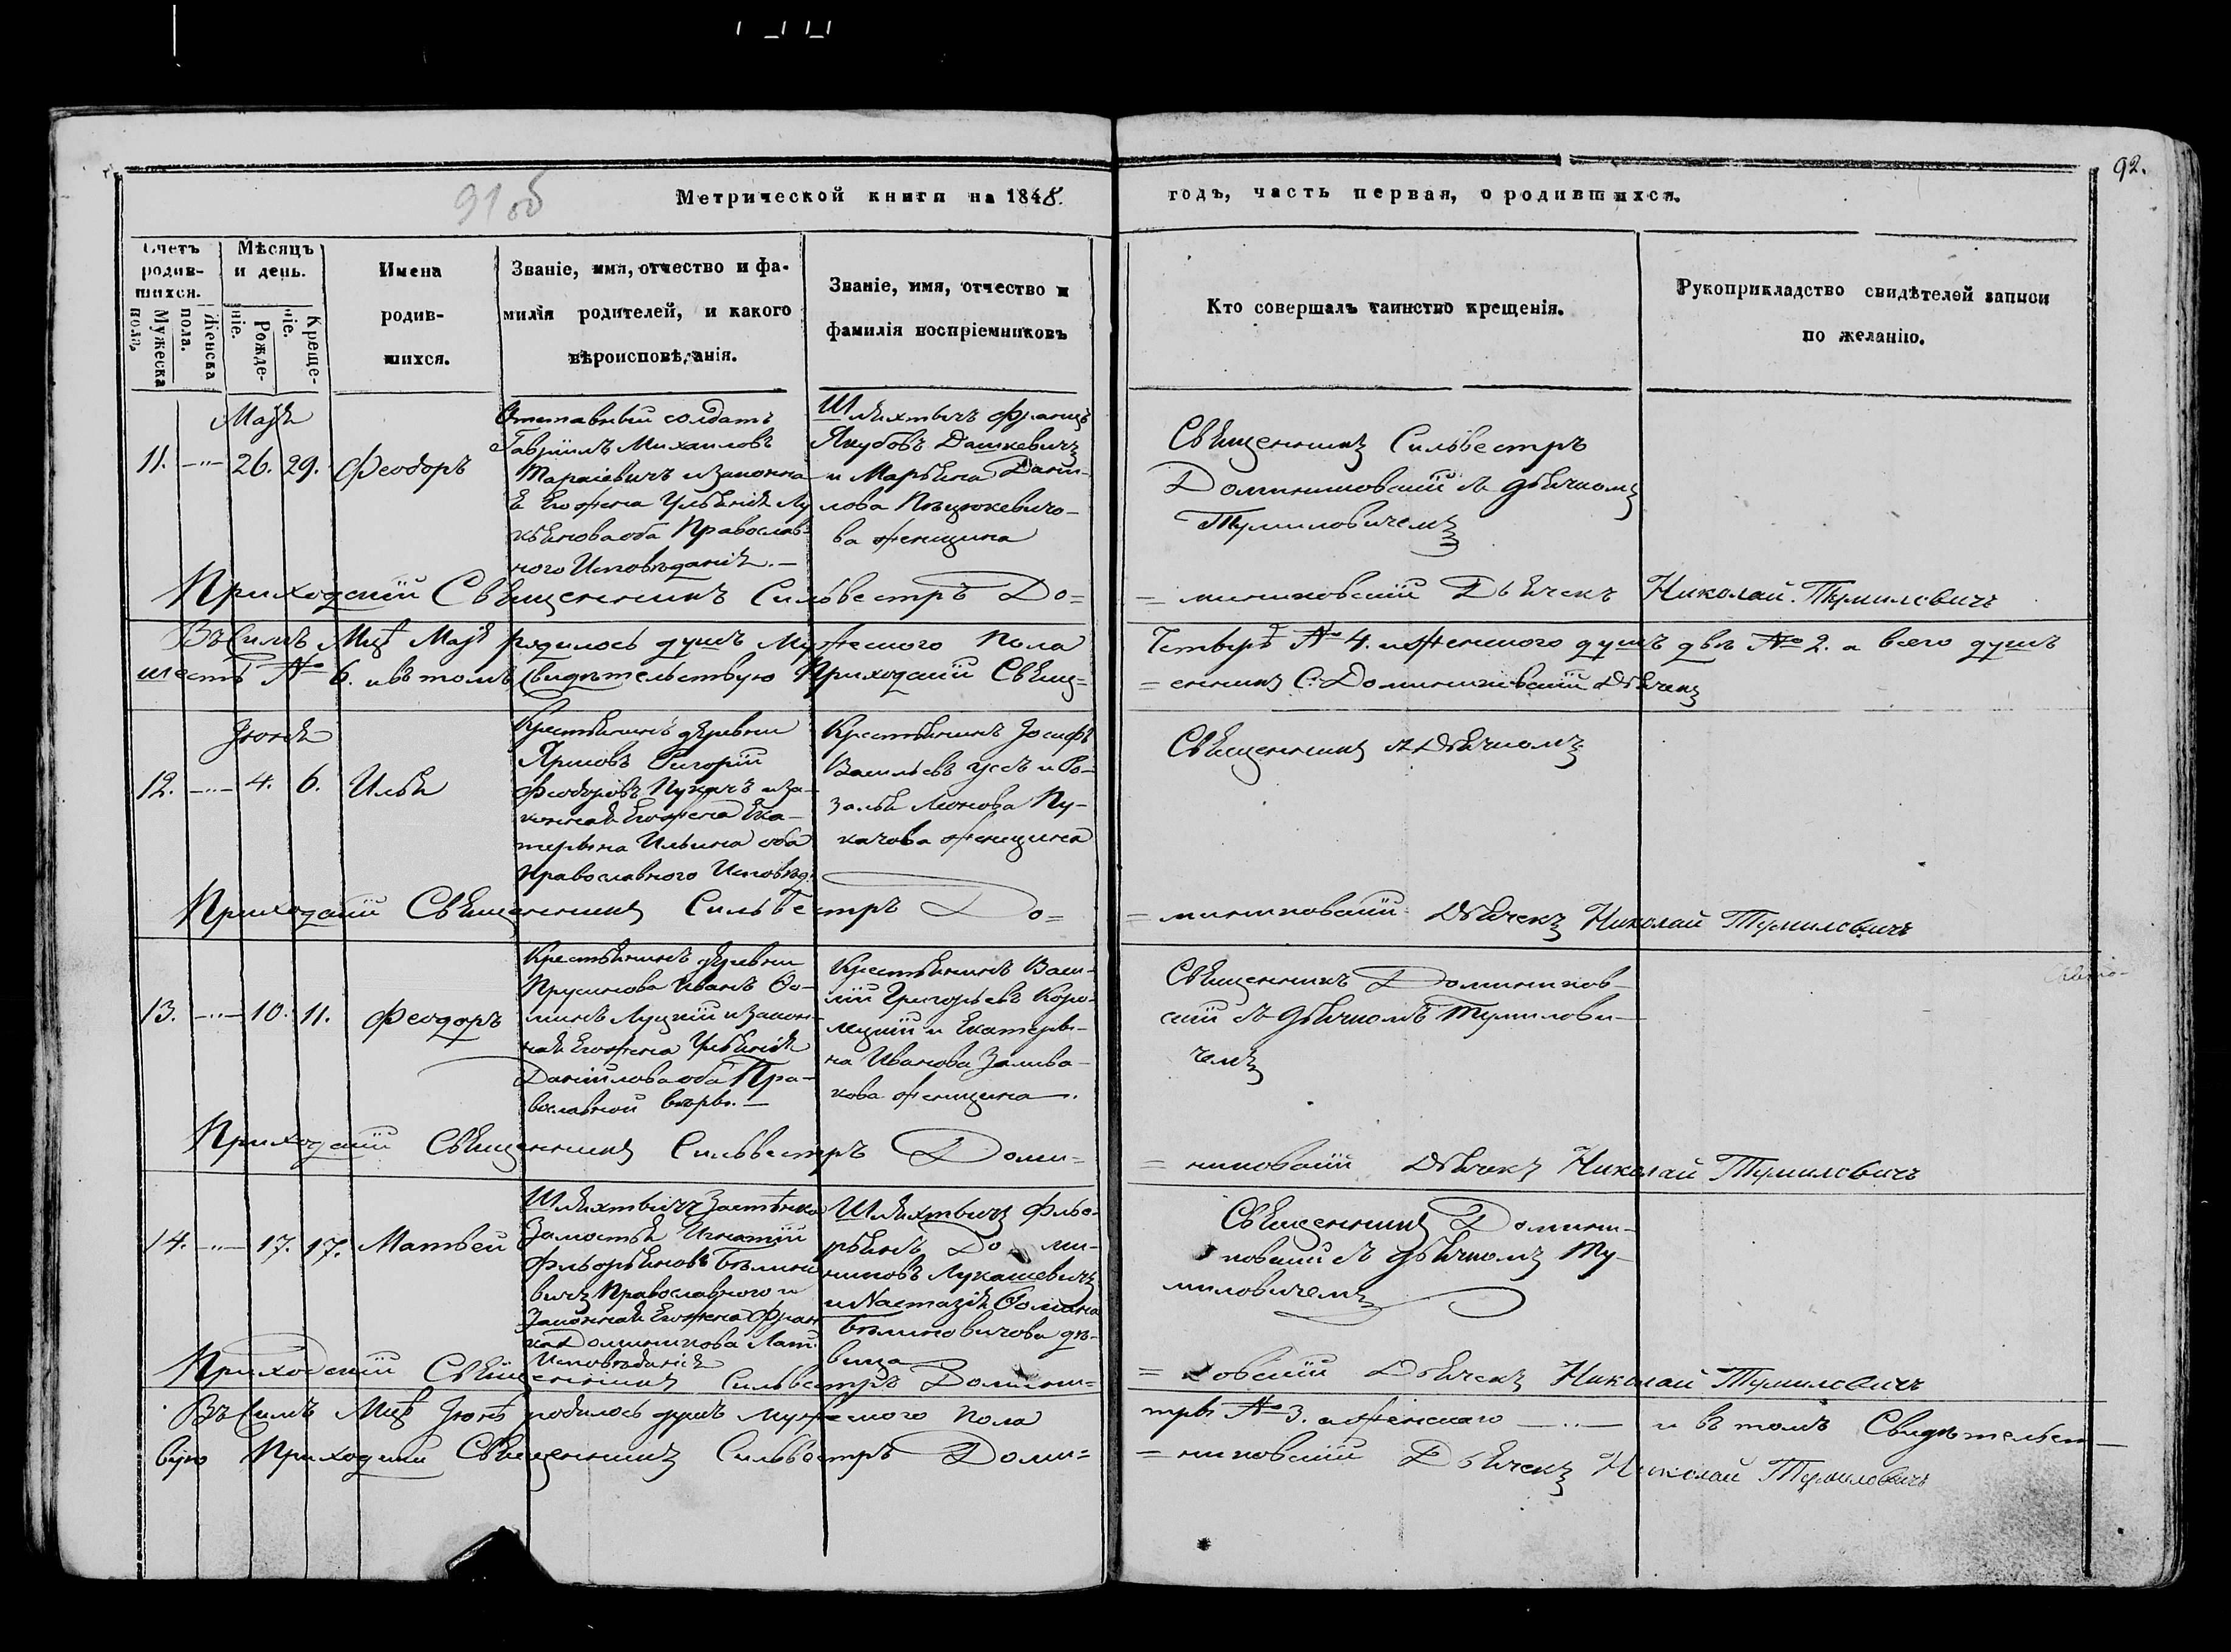 92.
91 об
Метрической книги на 1848.
годъ, часть первая, о родившихся.
Счетъ родив-шихся.
Мужеска пола.
Женска пола.
Мѣсяцъ и день.
Рожде-ніе.
Креще-ніе.
Имена
родив-
шихся.
Званіе, имя, отчество и фа-
милія родителей, и какого
вѣроисповѣданія.
Званіе, имя, отчество и
фамилія воспріемниковъ
Кто совершалъ таинство крещенія.
Рукоприкладство свидѣтелей записи
по желанію.
Маія
11. —"— 26. 29. Феодоръ
Отставный солдатъ
Гавріилъ Михаиловъ
Тарасіевичъ и законна
я Его жена Ульянія Лу
кьянова оба Православ-
ного Исповѣданія. —
Шляхтичъ Францъ
Якубовъ Дашкевичъ
и Марьяна Дани-
лова
ва женщина
Священникъ Сильвестръ
Доминиковскій съ дьячкомъ
Тумиловичемъ
Приходскій Священникъ Сильвестръ До=
= миниковскій Дьячекъ Николай Тумиловичъ
Въ Семъ Мцѣ Маіѣ родилось душъ Мужеского Пола
Четыре № 4. а женского душъ двѣ № 2. а всего душъ
шесть № 6. и въ томъ Свидѣтельствую Приходскій Свящ=
= енникъ С. Доминиковскій Дьячекъ
Іюня
12. —"— 4. 6. Илья
Крестьянинъ деревни
Григорій
Феодоровъ Пукачъ и за-
конная Его жена Ека-
терына Ильина оба
Православного Исповѣд.
Крестьянинъ Іосифъ
Васильевъ Усъ и Ро-
залія Пу-
качова женщина
Священникъ съ Дьячкомъ
Приходскій Священникъ Сильвестръ До=
= миниковскій Дьячекъ Николай Тумиловичъ
13. —"— 10. 11. Феодоръ
Крестьянинъ деревни
Прусинова Иванъ Ѳо-
минъ Луцкій и закон-
ная Его жена Ульянія
Даніилова оба Пра-
вославной вѣры. —
Крестьянинъ Васи-
лій Григорьевъ
и Екатеры-
на Иванова
кова женщина.
Священникъ Домиников-
скій съ дьячкомъ Тумилови-
чемъ
Приходскій Священникъ Сильвестръ Доми=
= никовскій Дьячекъ Николай Тумиловичъ
14. —"— 17. 17. Матвей
Шляхтичъ Застѣнка
Замостья Игнатій
Фльорьяновъ Бѣлино
вичъ Православного и
Законная Его жена Фран
Доминикова Лат.
Исповѣданія
Шляхтичъ Фльо-
рьянъ До ми-
никовъ Лукашевичъ
и Настазія Ѳомина
Бѣлиновичова дѣ-
вица
Священникъ Домини-
ковскій съ дьячкомъ Ту-
миловичемъ
Приходскій Священникъ Сильвестръ Домини=
= ковскій Дьячекъ Николай Тумиловичъ
Въ Семъ Мцѣ Іюнѣ родилось душъ мужеского пола
тры № 3. а женского —"— и въ томъ Свидѣтельст—
вую Приходскій Священникъ Сильвестръ Доми=
= никовскій Дьячекъ Николай Тумиловичъ